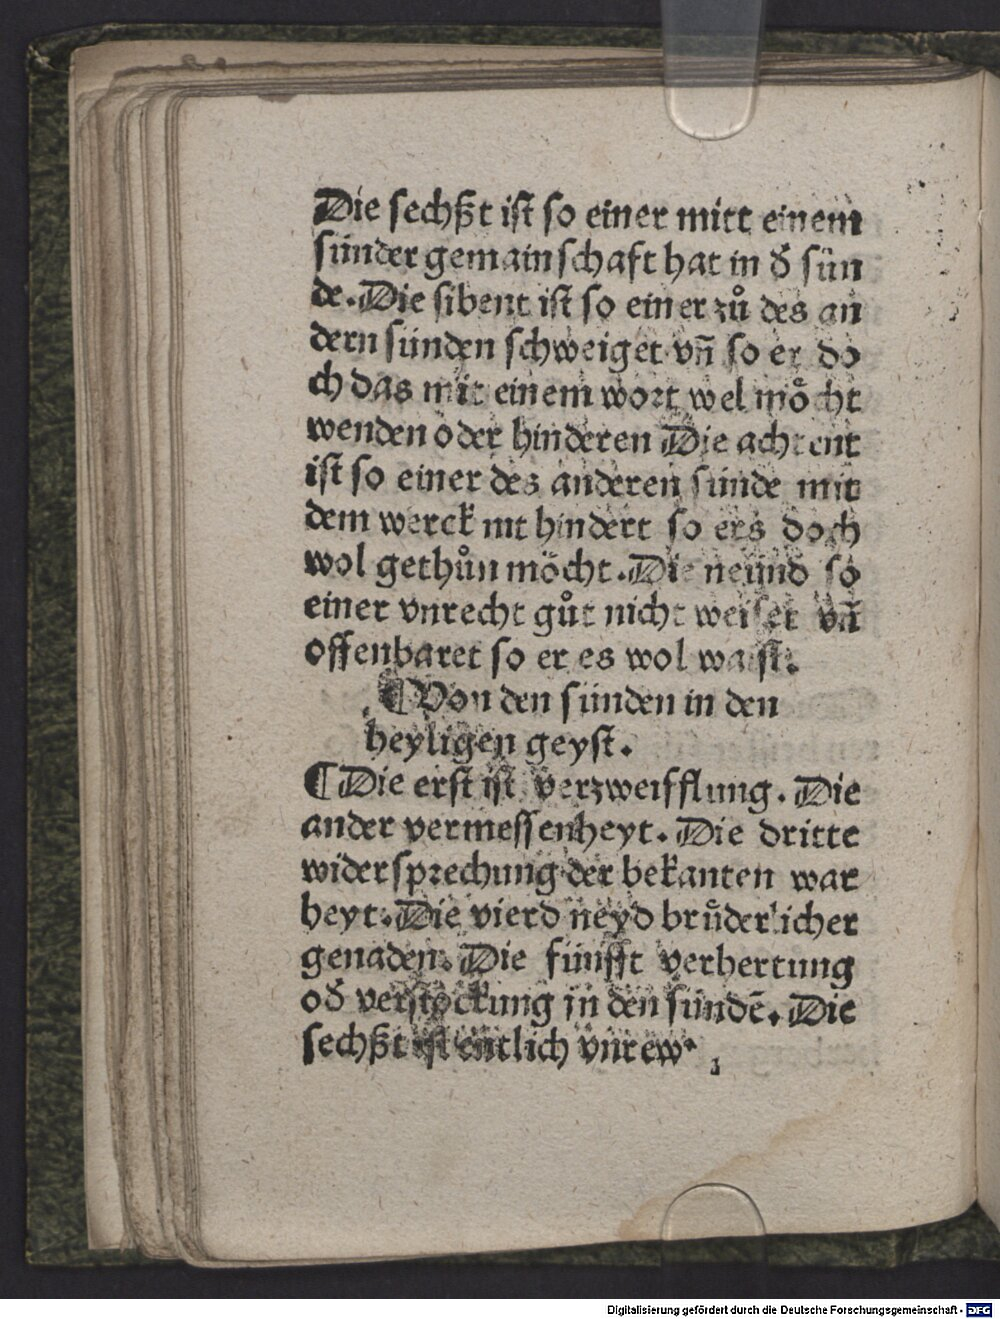 Die sechßt ist so einer mitt einem
sünder gemainschaft hat in đ sün
de. Die sibent ist so einer zů des an
dern sünden schweiget vñ so er do
ch das mit einem wort wel möcht
wenden oder hinderen Die achtent
ist so einer des anderen sünde mit
dem werck nit hindert so ers doch
wol gethůn möcht. Die neünd so
einer vnrecht gůt nicht weiset vñ
offenbaret so er es wol waist.
¶ Von den sünden in den
heyligen geyst.
¶ Die erst ist verzweifflung. Die
ander vermessenheyt. Die dritte
widersprechung der bekanten war
heyt. Die vierd neyd brůderlicher
genaden. Die fünfft verhertung
ođ verstockung in den sündē. Die
sechßt ist entlich vnrew
Digitalisierung gefördert durch die Deutsche Forschungsgemeinschaft - DFG